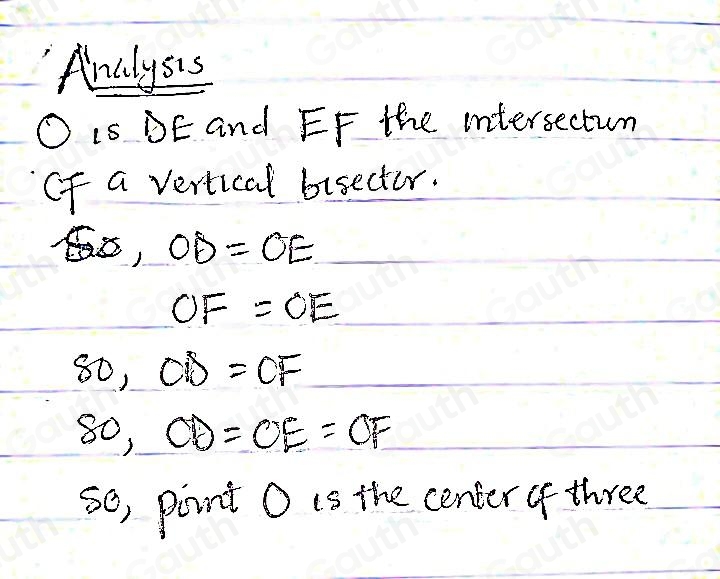 Analysis
O is DE and EF the intersectun
of a vertical bisector.
So, OD = OE
OF = OE
so, OD = OF
so, OD = OE = OF
so, point O is the center of three